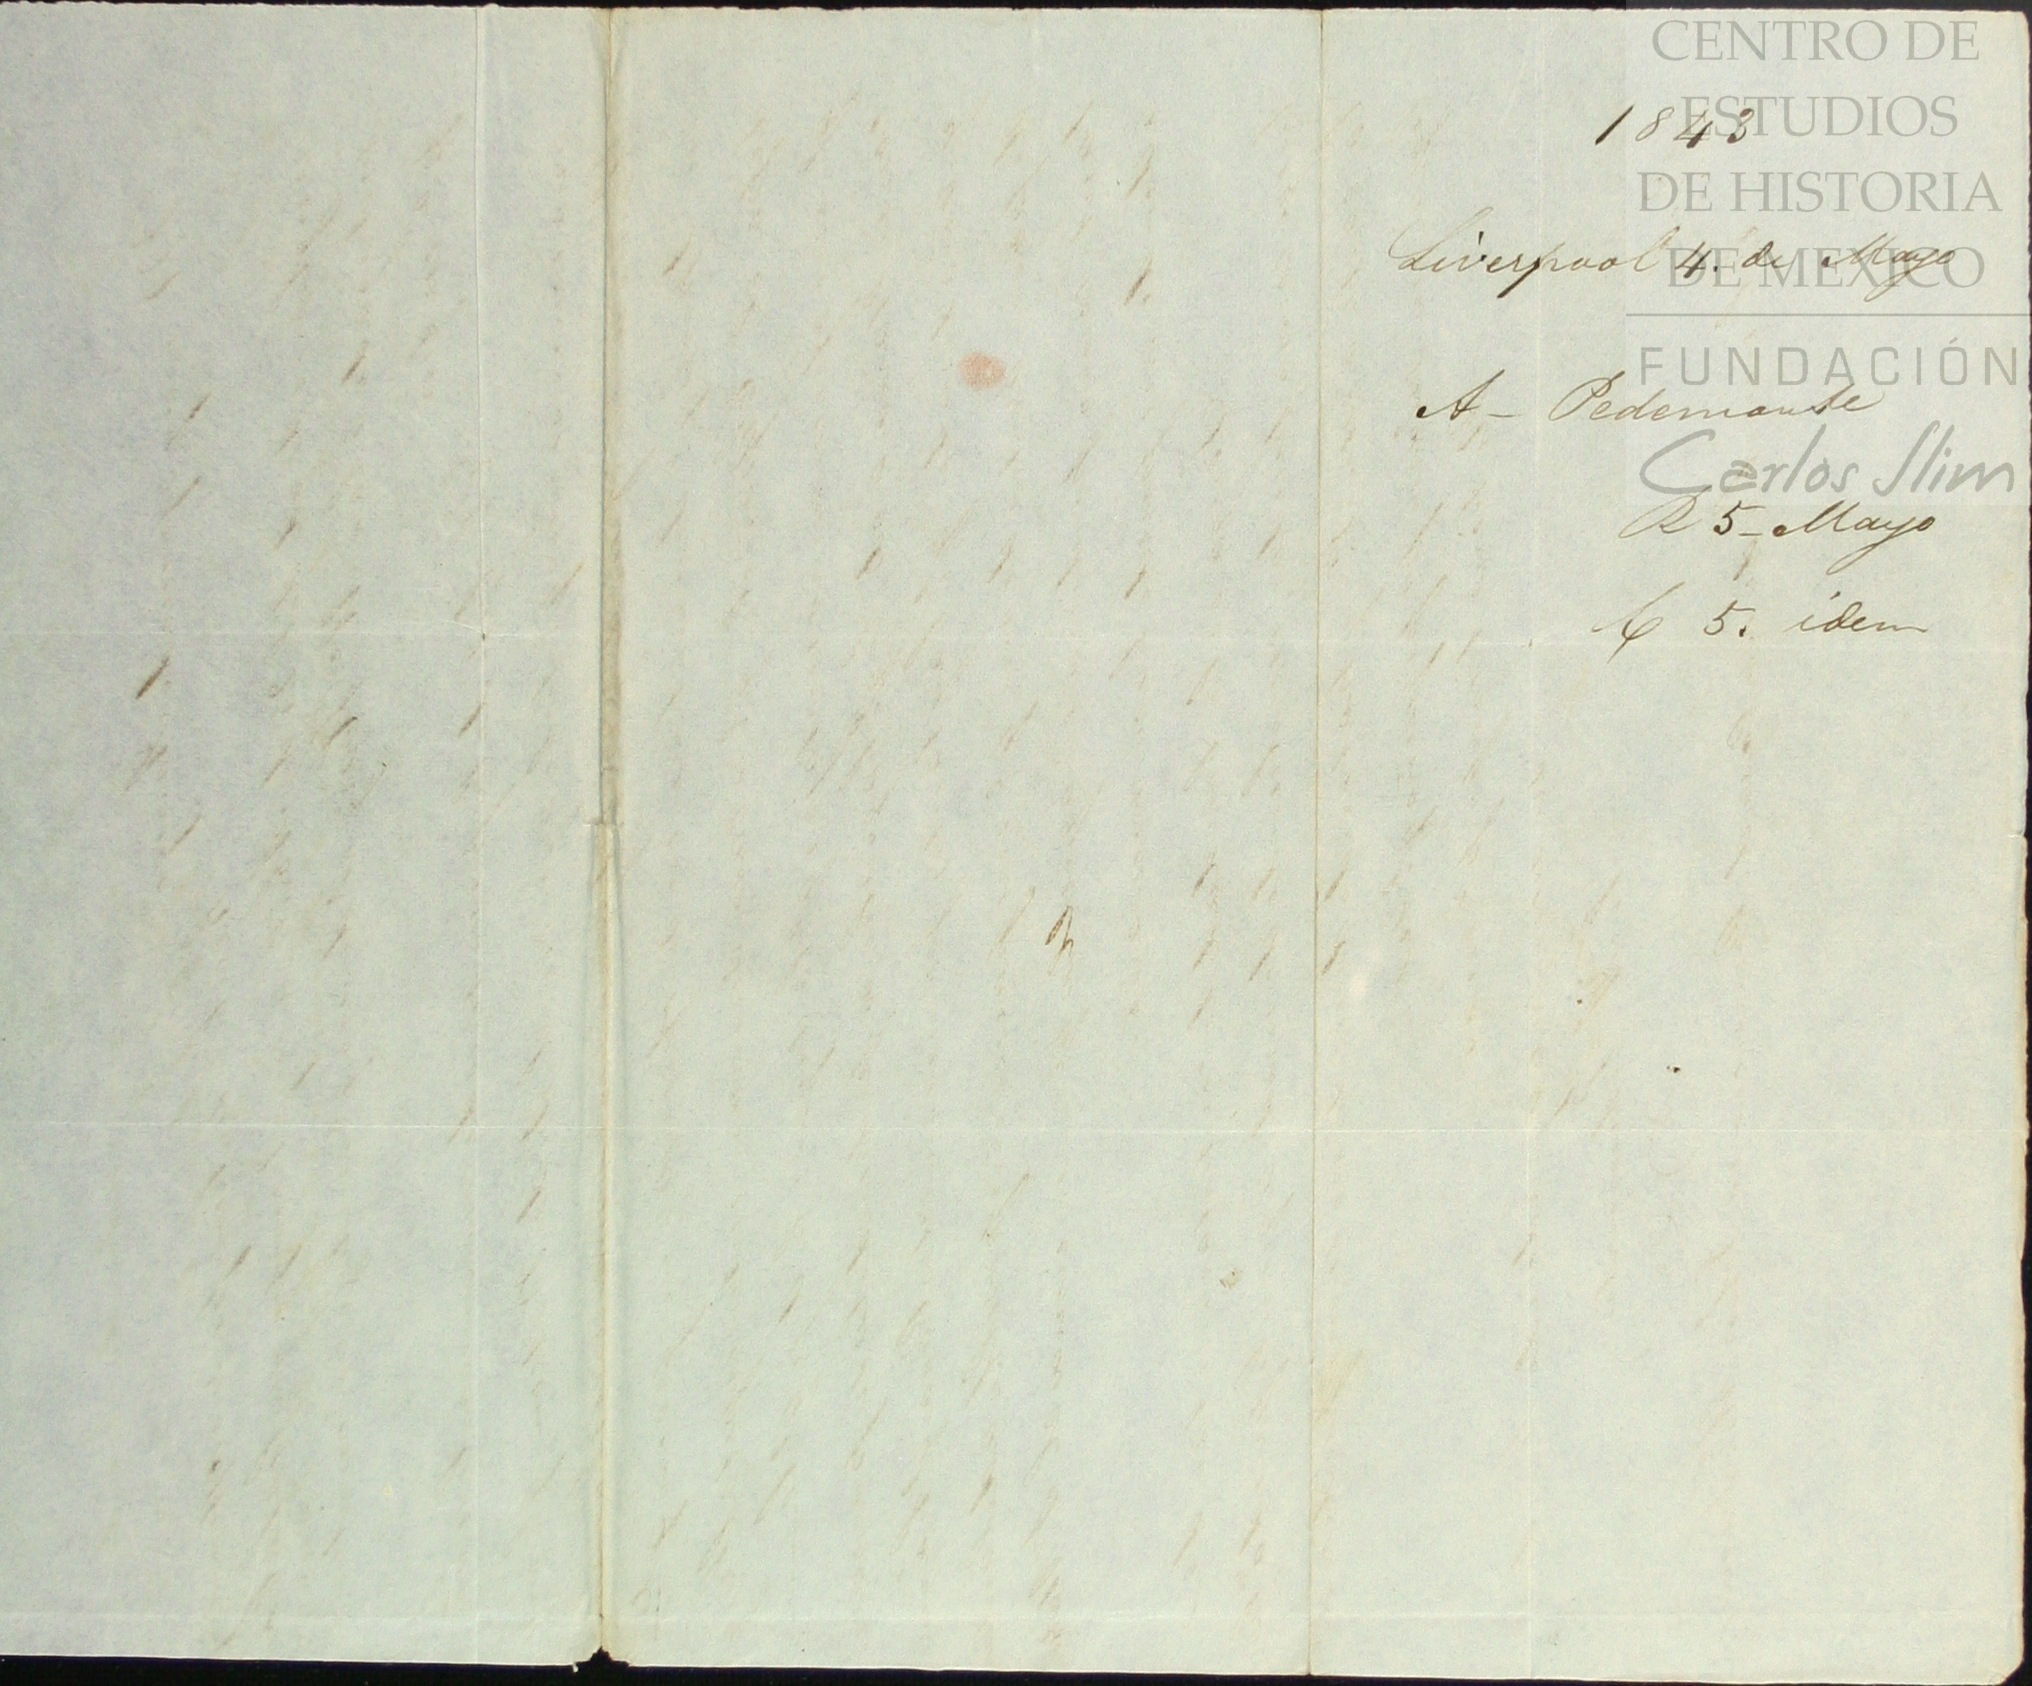 CENTRO DE
ESTUDIOS
DE HISTORIA
DE MEXICO
FUNDACIÓN
Carlos Slim
1843
Liverpool 4. de Mayo
A - Pedemonte
R 5 - Mayo
C 5. idem